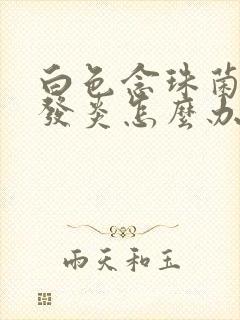 白色念珠菌
發炎怎麼办
雨天和玉